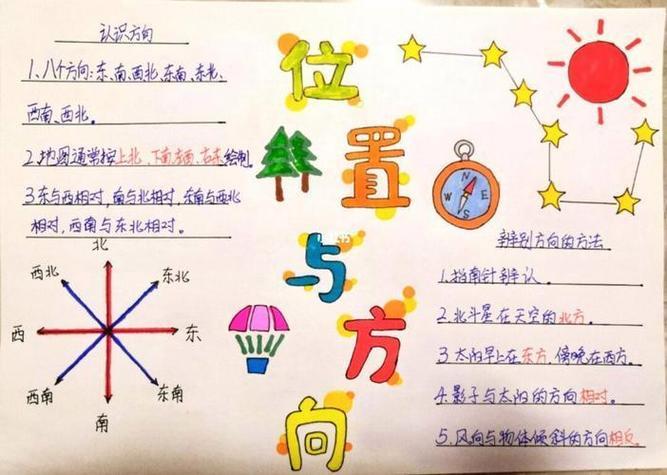 认识方向
1、八个方向：东、南、西、北、东南、东北、
西南、西北。
2、地图通常按上北、下南、左西、右东绘制。
3、东与西相对，南与北相对，东南与西北
相对，西南与东北相对。
北
西北
东北
西
东
西南
东南
南
位
置
与
方
向
小红书
N
W
E
S
辨别方向的方法
1.指南针辨认。
2.北斗星在天空的北方。
3.太阳早上在东方，傍晚在西方。
4.影子与太阳的方向相对。
5.风向与物体倾斜的方向相反。